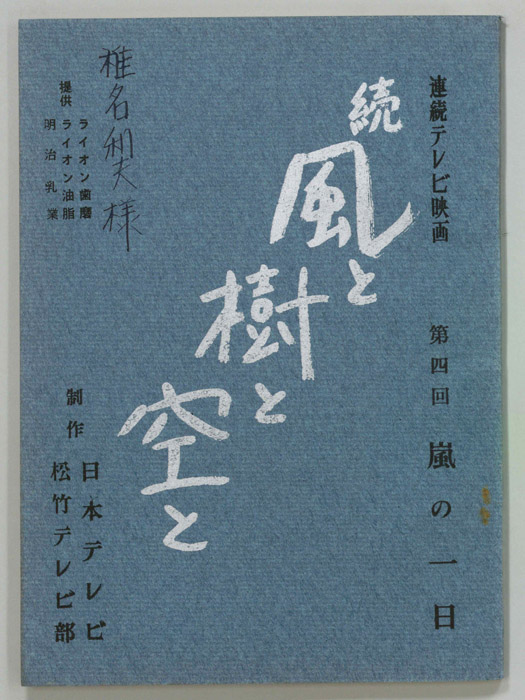 連続テレビ映画
続
風と
樹と
空と
第四回 嵐の一日
提供
ライオン歯磨
ライオン油脂
明治乳業
椎名和夫様
制作
日本テレビ
松竹テレビ部